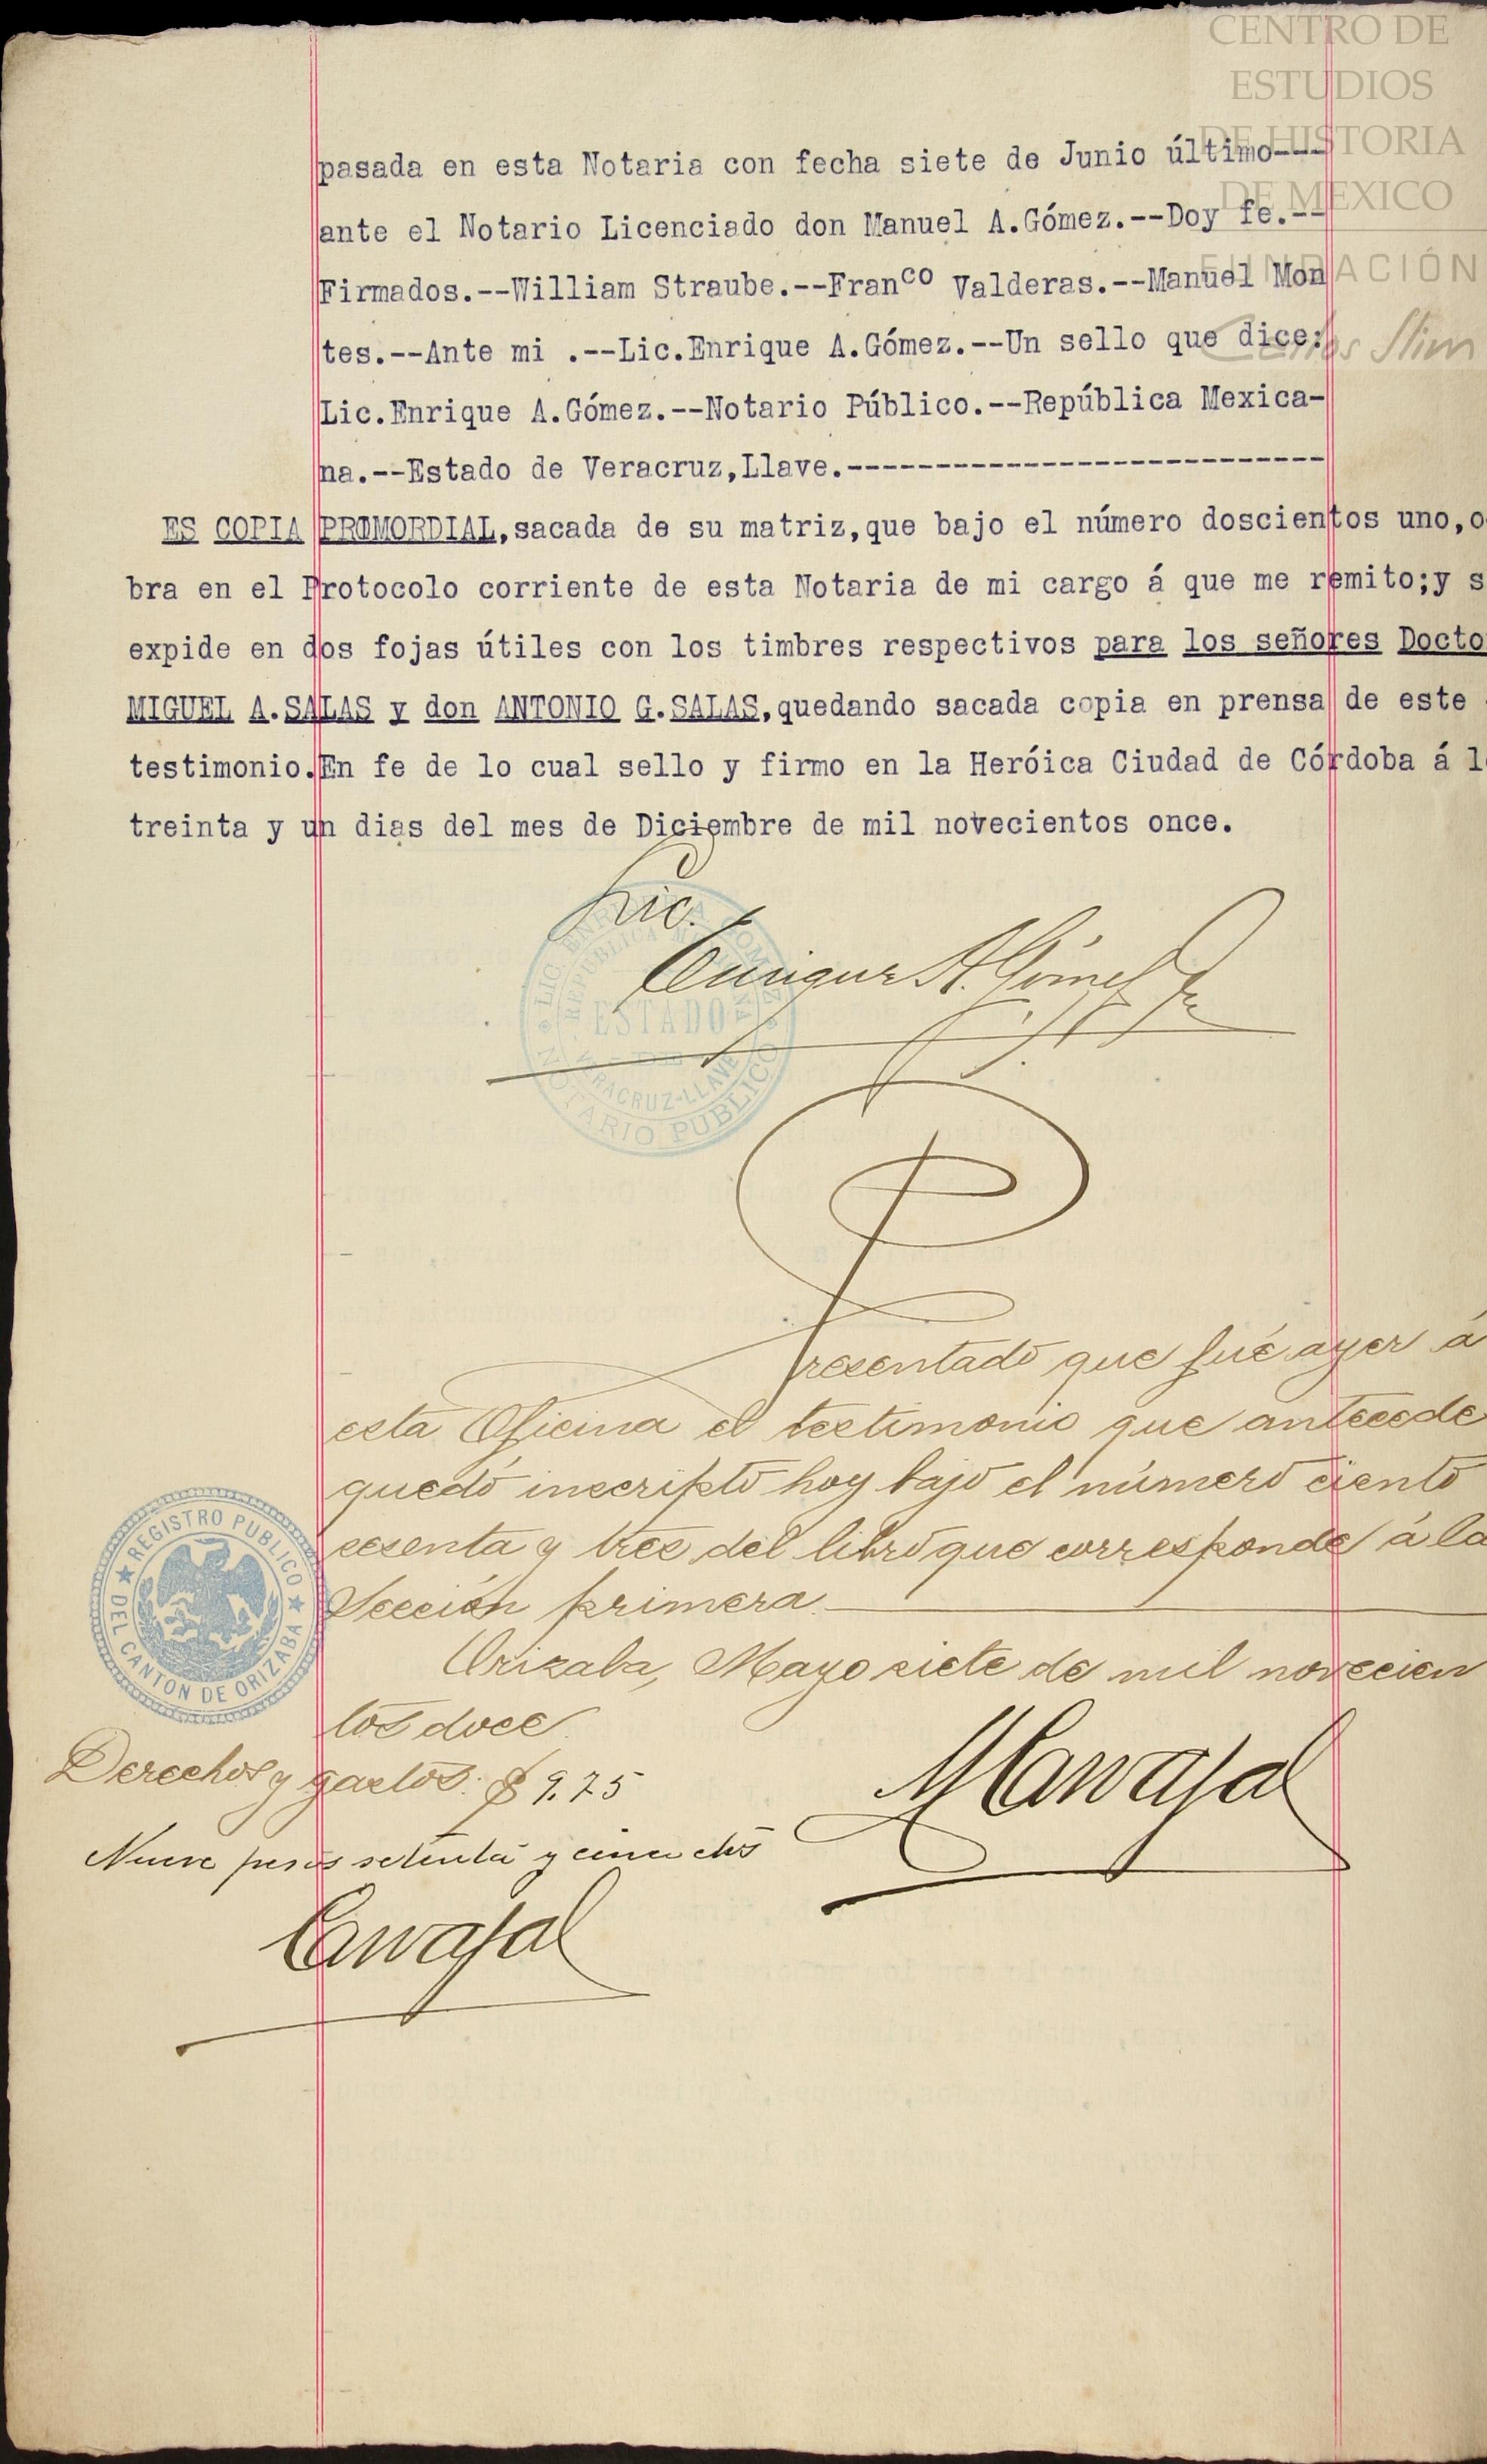 CENTRO DE
ESTUDIOS
DE HISTORIA
DE MEXICO
FUNDACIÓN
Carlos Slim
pasada en esta Notaria con fecha siete de Junio último---
ante el Notario Licenciado don Manuel A.Gómez.--Doy fe.--
Firmados.--William Straube.--Franco Valderas.--Manuel Mon
tes.--Ante mi .--Lic.Enrique A.Gómez.--Un sello que dice:
Lic.Enrique A.Gómez.--Notario Público.--República Mexica-
na.--Estado de Veracruz,Llave.---------------------------
ES COPIA PRIMORDIAL,sacada de su matriz,que bajo el número doscientos uno,o
bra en el Protocolo corriente de esta Notaria de mi cargo á que me remito;y s
expide en dos fojas útiles con los timbres respectivos para los señores Docto
MIGUEL A.SALAS y don ANTONIO G.SALAS,quedando sacada copia en prensa de este
testimonio.En fe de lo cual sello y firmo en la Heróica Ciudad de Córdoba á l
treinta y un dias del mes de Diciembre de mil novecientos once.
Lic.
Enrique A. Gómez
LIC. ENRIQUE A. GOMEZ
REPUBLICA MEXICANA
ESTADO
DE
VERACRUZ-LLAVE
NOTARIO PUBLICO
Presentado que fué ayer á
esta Oficina el testimonio que antecede
quedó inscripto hoy bajo el número ciento
sesenta y tres del libro que corresponde á la
Sección primera
REGISTRO PUBLICO
DEL CANTON DE ORIZABA
Orizaba, Mayo siete de mil novecien
tos doce
Derechos y gastos: $ 9.75
MCarvajal
Nueve pesos setenta y cinco cts
Carvajal